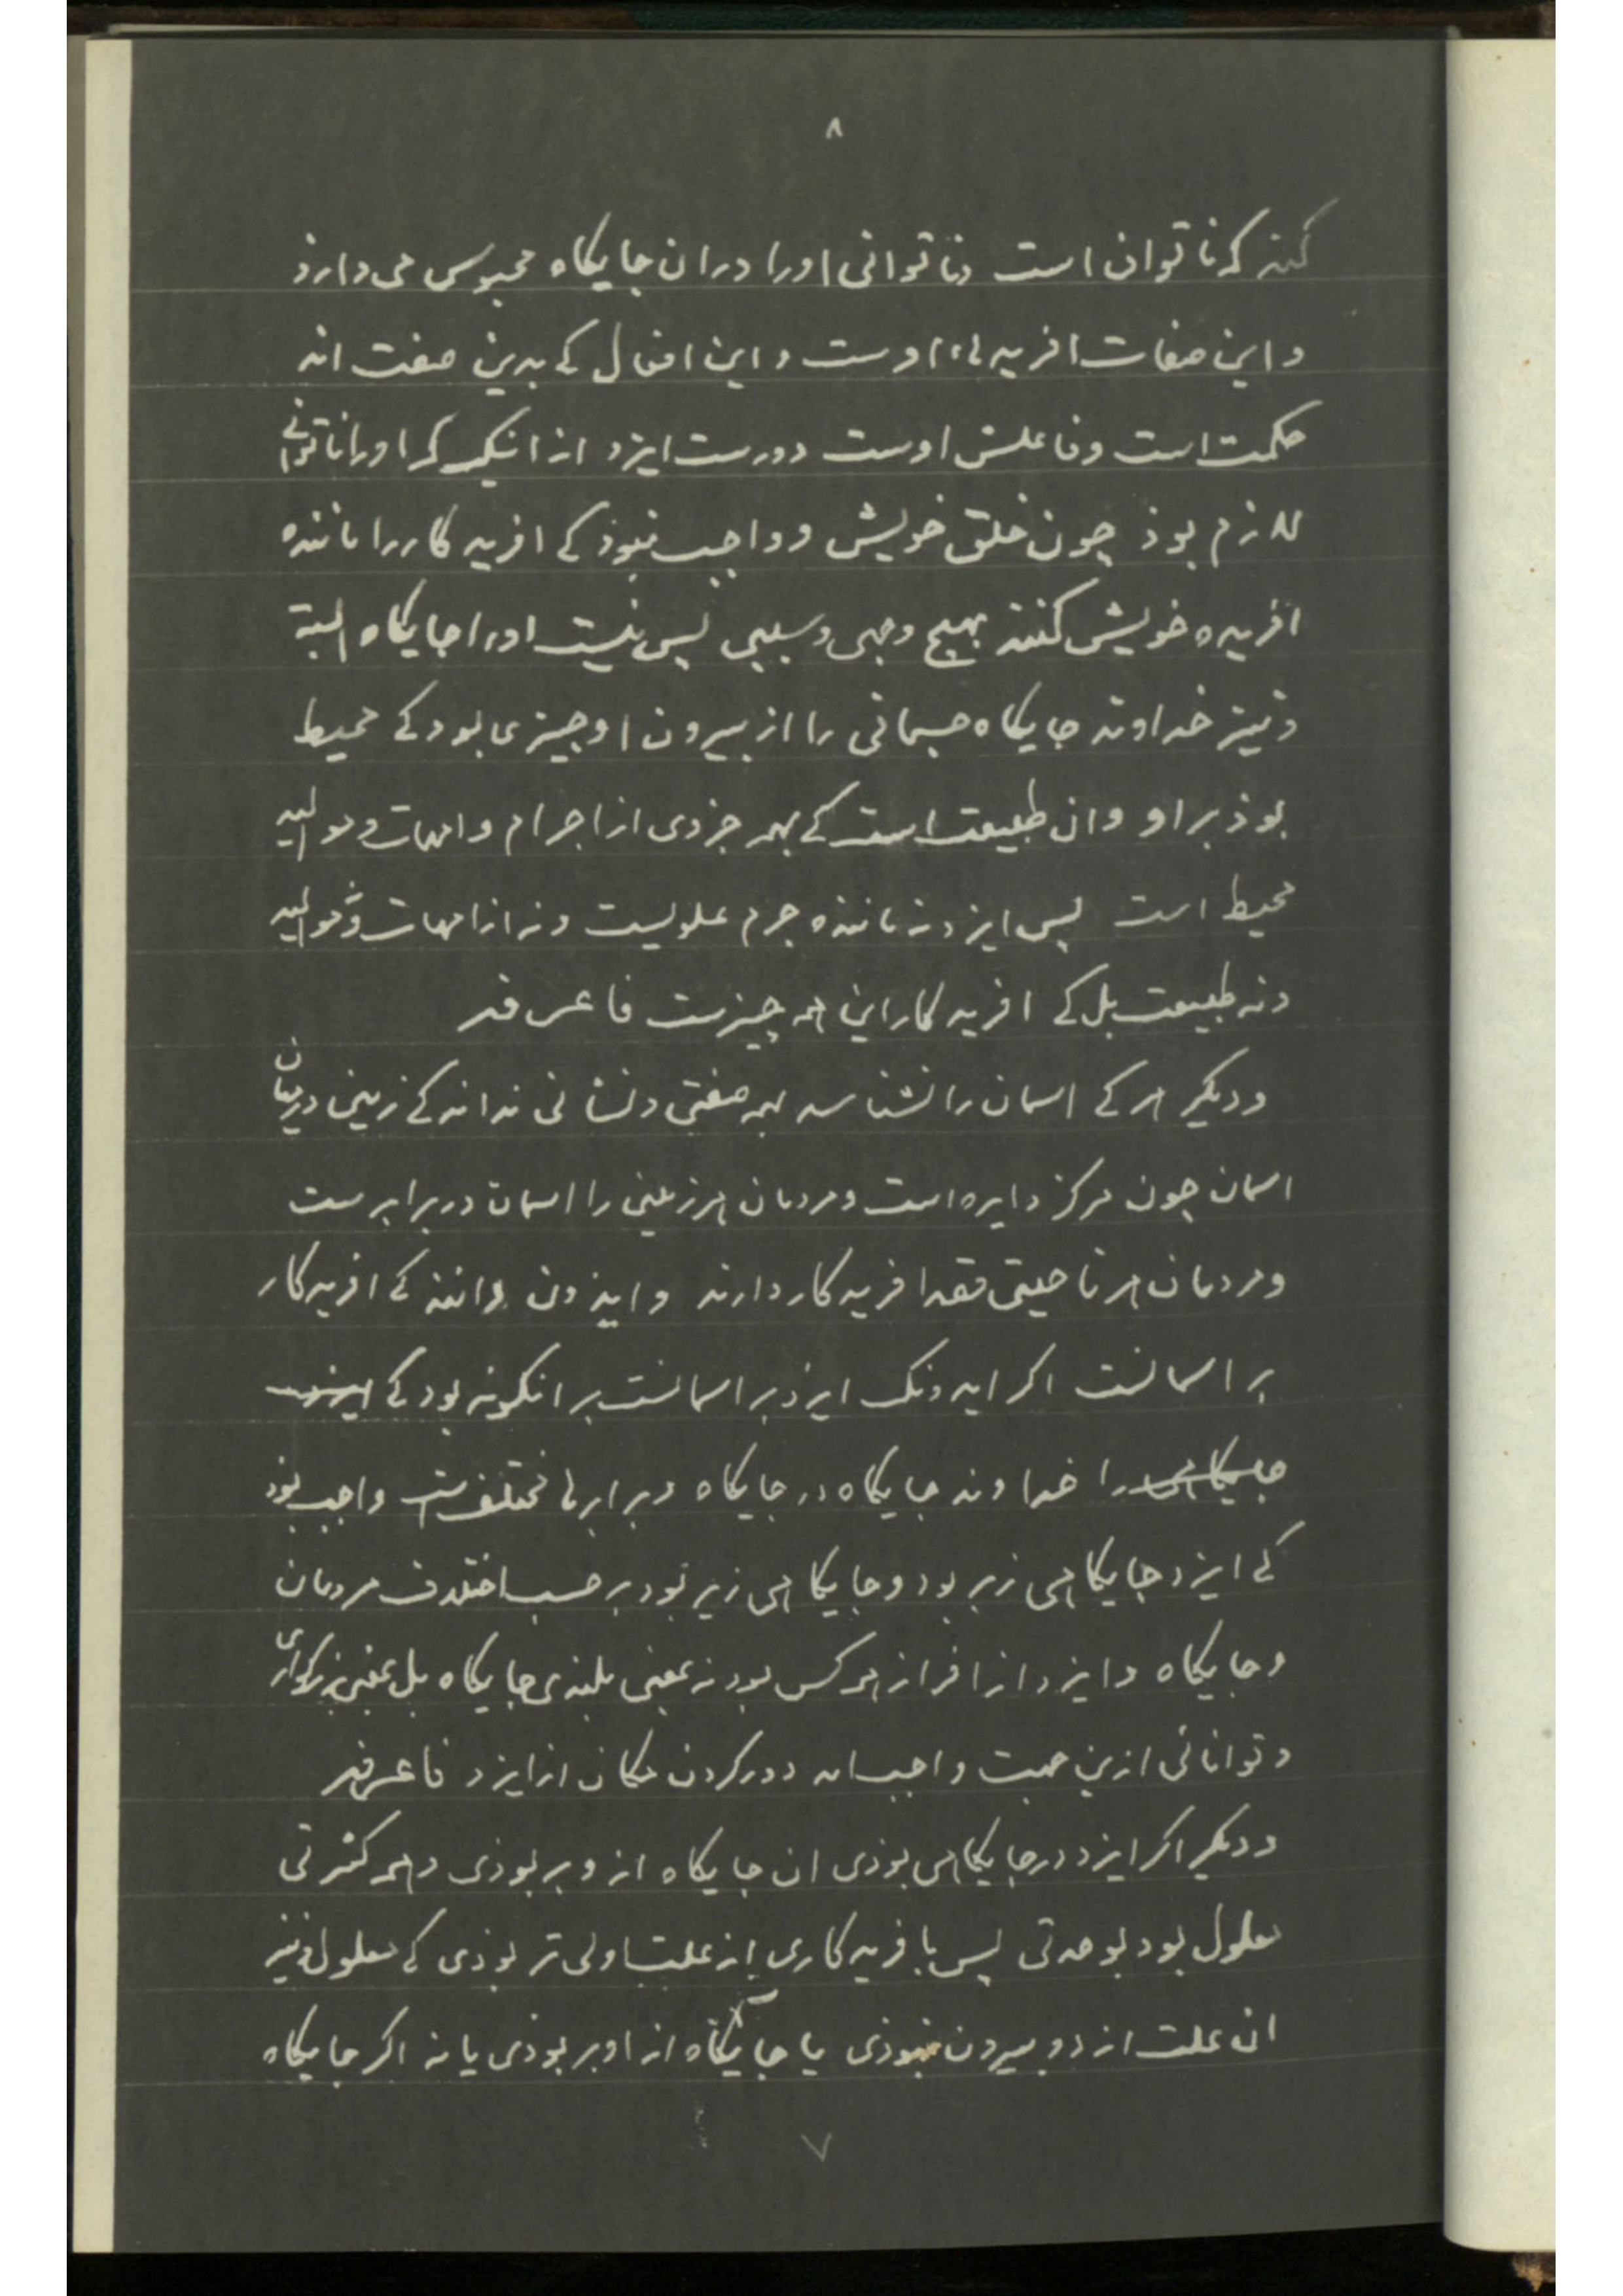 ۸
کند که ناتوان است و ناتوانی اورا دران جایکاه محبوس می دارذ
و این صفات افریده او ست و این افعال کے بدین صفت اند
حکمت است و فاعلش اوست دورست ایزد از انکس که اورا ناتوانی
لازم بوذ چون خلق خویش و واجب نبوذ کے افریدکاررا ماننده
افریده خویش کنند بهیچ وجهی و سببی پس نیست اورا جایکاه البته
و نیز خداوند جایکاه جسمانی را از بیرون او چیزی بود کے محیط
بوذ بر او و ان طبیعت است کے بهمه جزوی از اجرام و امهات و موالید
محیط است پس ایزد نه ماننده جرم علویست و نه از امهات و موالید
و نه طبیعت بل کے افریدکار این همه چیزست فاعرفه
و دیکر هر کے اسمان را نشناسد بهمه صفتی و نشانی نداند کے زمین درمیان
اسمان چون مرکز دایره است و مردمان هر زمینی را اسمان در برابرست
و مردمان هر ناحیتی قصد افریدکار دارند و ایذون دانند کے افریدکار
بر اسمانست اکر ایدونک ایزد بر اسمانست بر انکونه بود کے ایزد
جایکاهی را خداوند جایکاه در جایکاه و برابرها مختلف است واجب بوذ
کے ایزد جایکاهی زبر بود و جایکاهی زیر بود بر حسب اختلاف مردمان
و جایکاه و ایزد از افراز هر کس بود نه بمعنی بلندی جایکاه بل بمعنی بزرکواری
و توانائی ازین جهت واجب امد دور کردن مکان از ایزد فاعرفه
و دیکر اکر ایزد در جایکاهی بوذی ان جایکاه از و بر بوذی و همه کثرتی
معلول بود بوحدتی پس بافریدکاری ان علت اولی تر بوذی کے معلول و نیز
ان علت از دو بیرون نبوذی یا جایکاه از او بر بوذی یا نه اکر جایکاه
۷